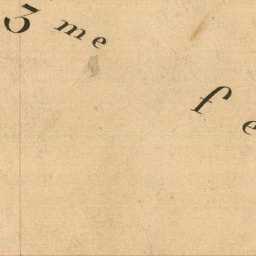 3me fe